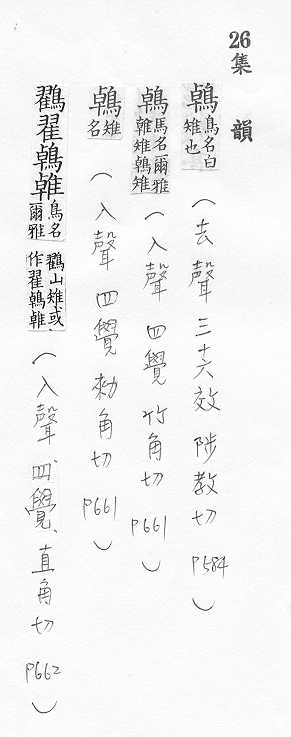 26集韻
鵫鳥名白雉也（去聲 三十六效 陟教切 P584）
鵫馬名爾雅雗雉鵫雉（入聲 四覺 竹角切 P661）
鵫雉名（入聲 四覺 勑角切 P661）
鸐翟鵫雗鳥名爾雅鸐山雉或作翟鵫雗（入聲、四覺、直角切 P662）